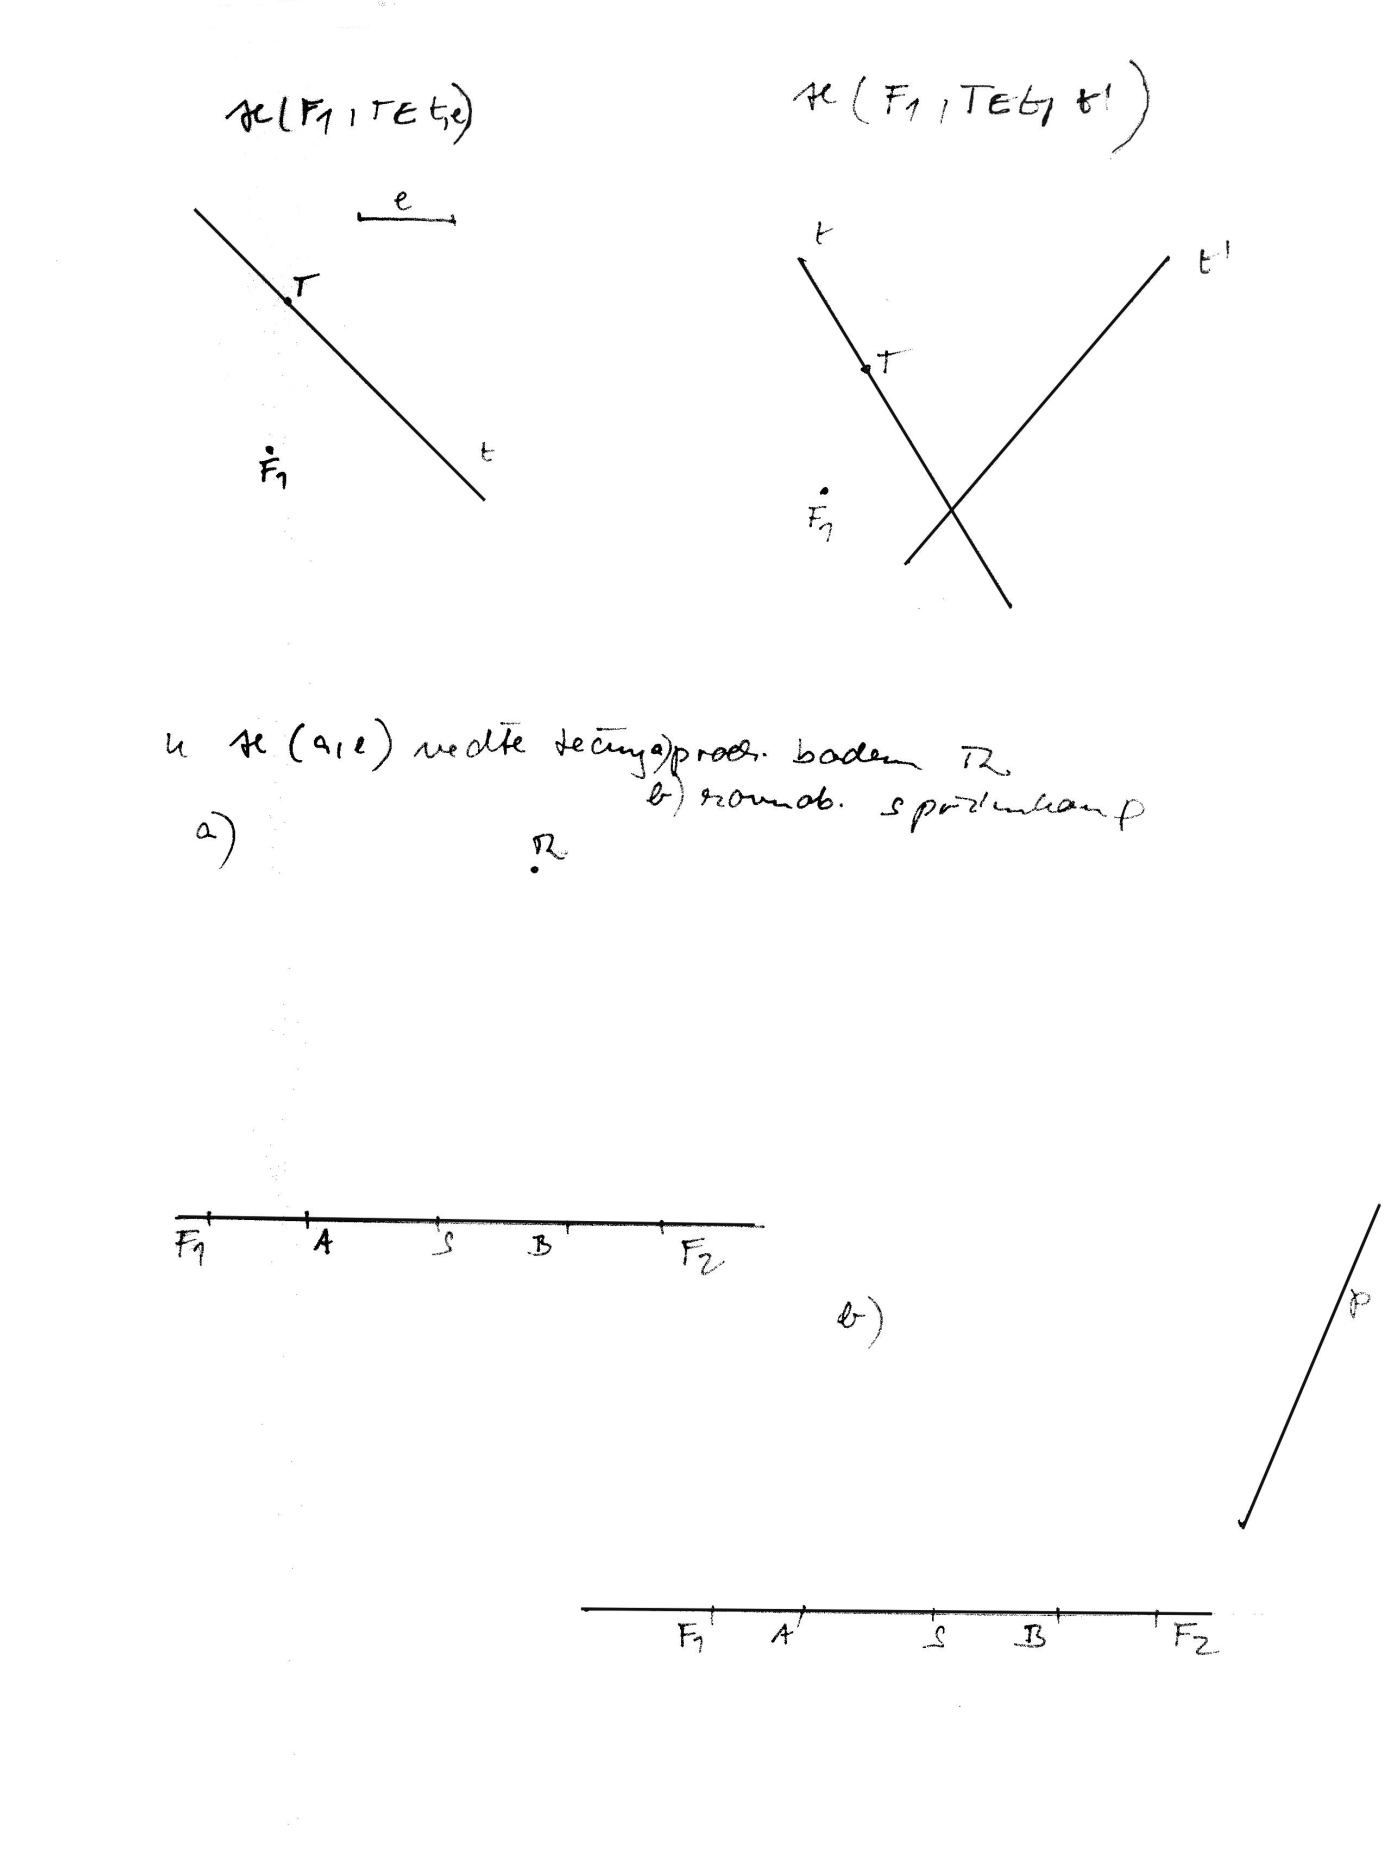 ℋ(F₁, T∈t, e)
ℋ(F₁, T∈t, t')
e
T
t
F₁
t
t'
T
F₁
k ℋ(a,e) veďte tečny a) proch. bodem R
b) rovnob. s přímkou p
a)
R
F₁ A S B F₂
b)
p
F₁ A S B F₂